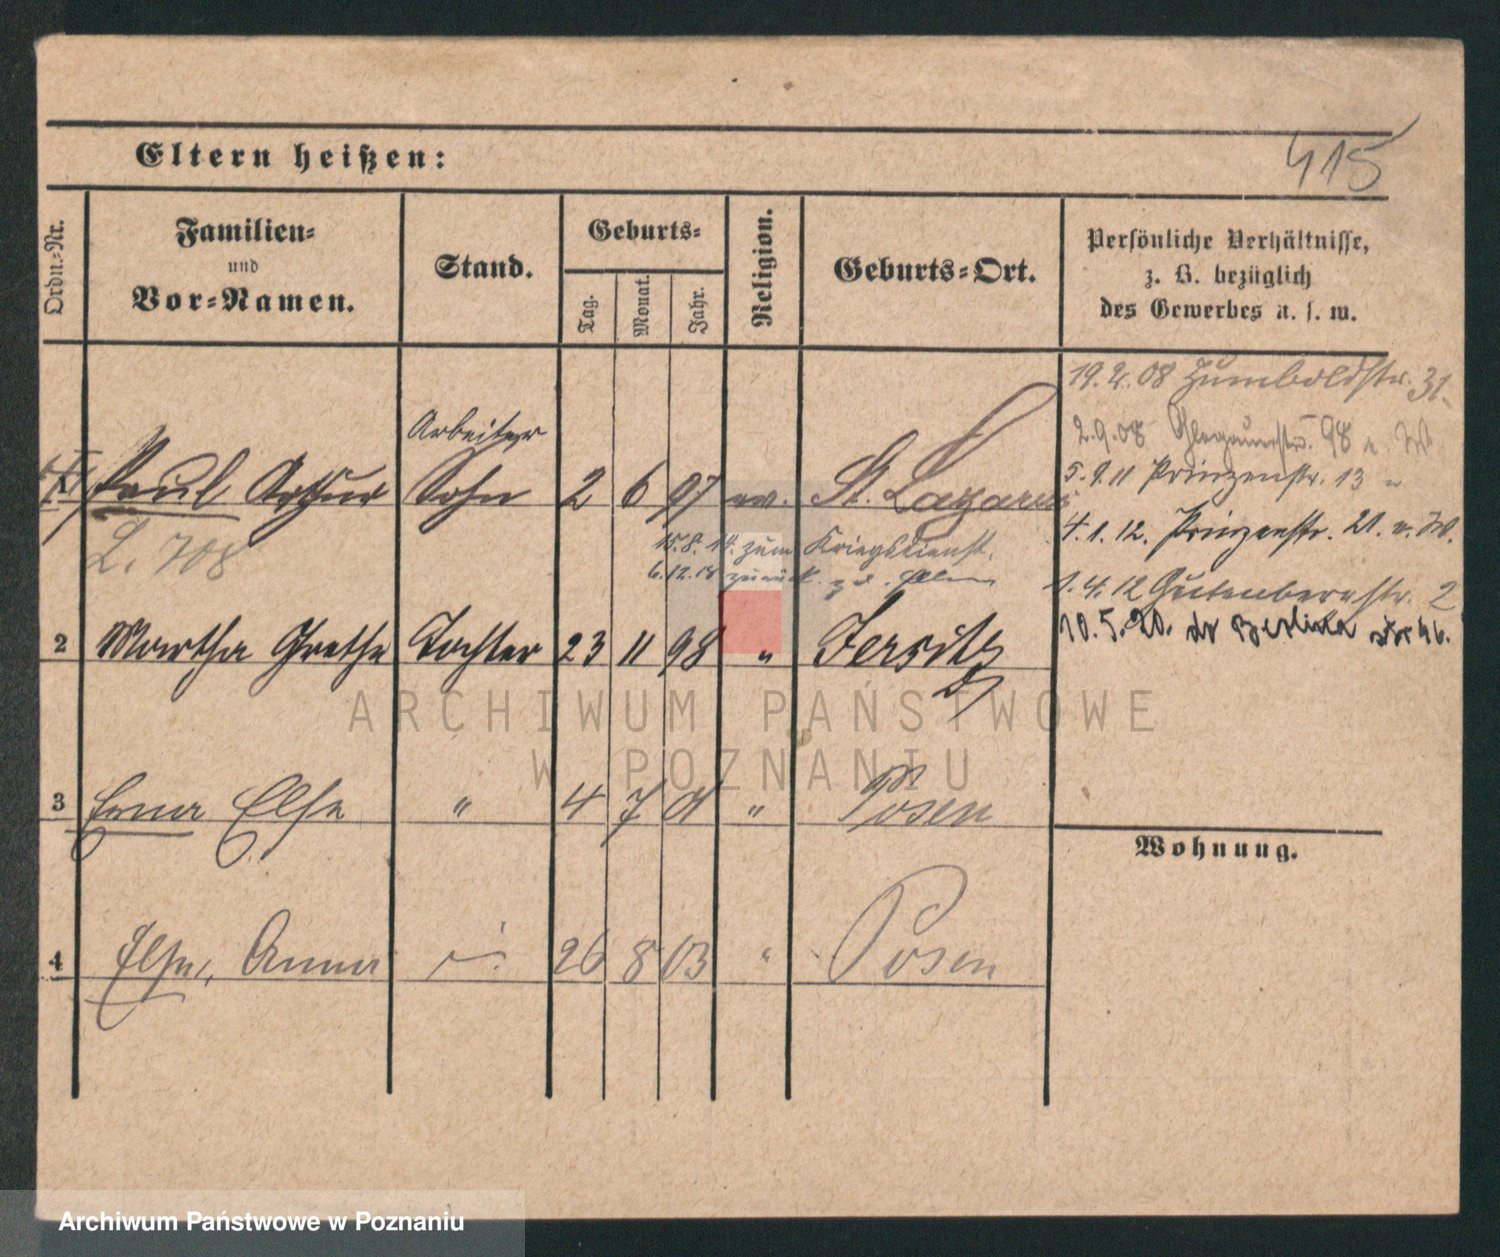 415
Eltern heißen:
Ordn.-Nr.
Familien-
und
Vor-Namen.
Stand.
Geburts-
Tag.
Monat.
Jahr.
Religion.
Geburts-Ort.
Persönliche Verhältnisse,
z. B. bezüglich
des Gewerbes u. s. w.
19.2.08 Humboldtstr. 31.
2.9.08 Glogauerstr. 98 u. W
5.9.11 Prinzenstr. 13 "
4.1.12. Prinzenstr. 21. u. W.
1.4.12 Gutenbergstr. 2
10.5.20.
Arbeiter
Paul Arthur Sohn 2 6 97 ev. St. Lazarus
L. 708
15.8.14. zum Kriegsdienst.
6.12.18 zurück
2 Martha Grethe Tochter 23 11 98 " Jersitz
3 Erna Else " 4 7 01 " Posen
4 Else, Anna 26 8 03 " Posen
Wohnung.
ARCHIWUM PAŃSTWOWE
W POZNANIU
Archiwum Państwowe w Poznaniu